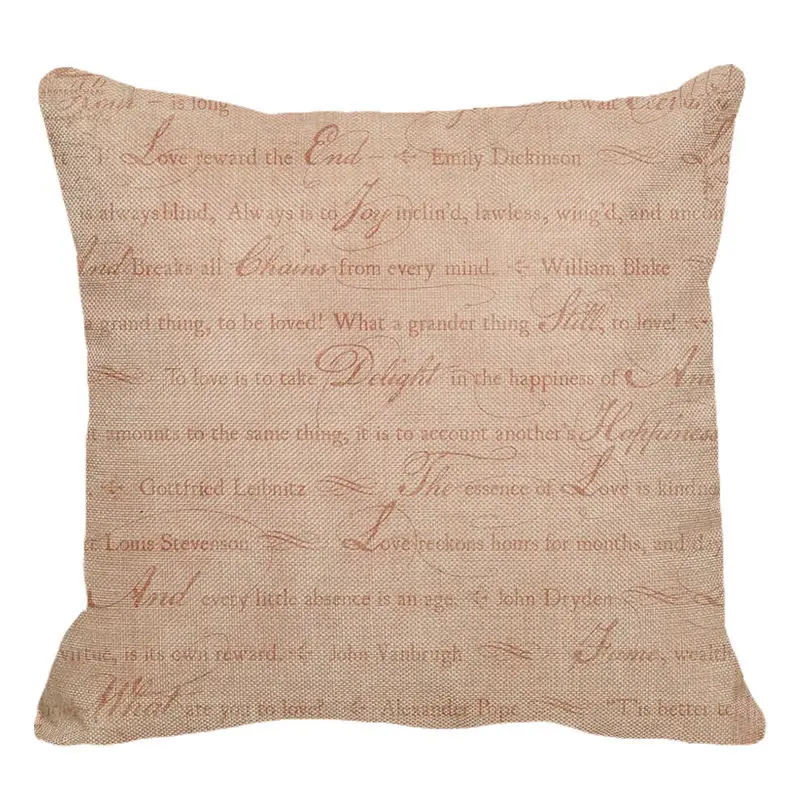 Hour – is long to wait
Love reward the End – Emily Dickinson Lo
is always blind, Always is to Joy inclin'd, lawless, wing'd, and uncon
And Breaks all Chains from every mind. William Blake
a grand thing, to be loved! What a grander thing Still, to love!
To love is to take Delight in the happiness of An
it amounts to the same thing, it is to account another's Happiness
Gottfried Leibnitz The essence of Love is kindne
rt Louis Stevenson Love reckons hours for months, and day
And every little absence is an age. John Dryden
virtue, is its own reward. John Vanbrugh Fame, wealth
What are you to love? Alexander Pope "T'is better to